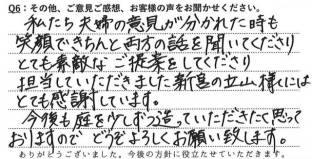 Q6：その他、ご意見ご感想、お客様の声をお聞かせください。
私たち夫婦の意見が分かれた時も
笑顔できちんと両方の話を聞いてくださり
とても素敵なご提案をしてくださり
担当していただきました新富の立山様には
とても感謝しています。
今後も庭を少しずつ造っていただきたく思って
おりますので どうぞよろしくお願い致します。
ありがとうございました。今後の方針に役立たせていただきます。